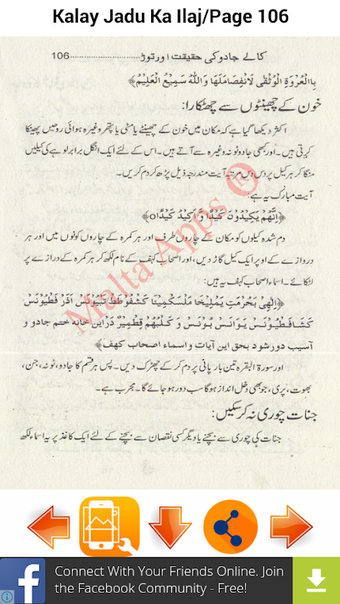 Kalay Jadu Ka Ilaj/Page 106
کالے جادو کی حقیقت اور توڑ........................106
بِالْعُرْوَةِ الْوُثْقٰى لَانْفِصَامَ لَهَا وَاللّٰهُ سَمِيْعٌ الْعَلِيْمُ﴾
خون کے چھینٹوں سے چھٹکارا:
اکثر دیکھا گیا ہے کہ مکان میں خون کے چھینٹے یا مٹی یا پتھر وغیرہ ہوائی روحیں پھینکا
کرتی ہیں۔ اور کبھی جادو ٹونہ وغیرہ سے آتے ہیں۔ اس کے لئے ایک انگل برابر لوہے کی کیلیں
منگا کر ہر کیل پر دس دس مرتبہ آیت مندرجہ ذیل پڑھ کر دم کریں۔
آیت مبارک یہ ہے:
﴿اِنَّهُمْ يَكِيْدُوْنَ كَيْدًا وَّاَكِيْدُ كَيْدًا٥﴾
دم شدہ کیلوں کو مکان کے چاروں طرف اور ہر کمرہ کے چاروں کونوں میں اور ہر
دروازے کے اوپر ایک کیل گاڑ دیں، اور اصحاب کہف کے نام لکھ کر ہر کمرہ کے دروازے پر
لٹکائے۔ اسماء اصحاب کہف یہ ہیں:
﴿اِلٰهِیْ بَحُرْمَتِ يَمْلِيْخَا مَلْسَكْمِيْنَا كَشْفُوْطَطْ تَبْيُوْنَسْ اَذَرْ فَطْيُوْنَسْ
كَشَافَطْيُوْنَسْ يُوَانَسْ بُوْنَسْ وَ كَلْبُهُمْ قِطْمِيْرْ در ایں خانہ ختم جادو و
آسیب دور شود بحق ایں آیات و اسماء اصحاب کہف﴾
اور سورۃ البقرہ تین بار پانی پر دم کر کے چھڑک دیں۔ پس ہر قسم کا جادو، ٹونہ، جن،
بھوت، پری، جو بھی خلل انداز ہو گا سب دور ہو جائے گا۔ مجرب ہے۔
جنات چوری نہ کر سکیں:
جنات کی چوری سے بچنے یا دیگر کسی نقصان سے بچنے کے لئے ایک کاغذ پر یہ اسماء لکھ
Malta Apps ®
Connect With Your Friends Online. Join
the Facebook Community - Free!